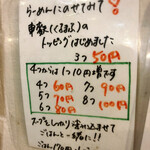 らーめんにのせてみて!
車麩(くるまふ)の
トッピングはじめました
3つ 50円
4つからは 1つ10円増です
4つ 60円 7つ 90円
5つ 70円 8つ 100円
6つ 80円
スープをしっかり染み込ませて
ごはんと一緒に!!
ごはん170円